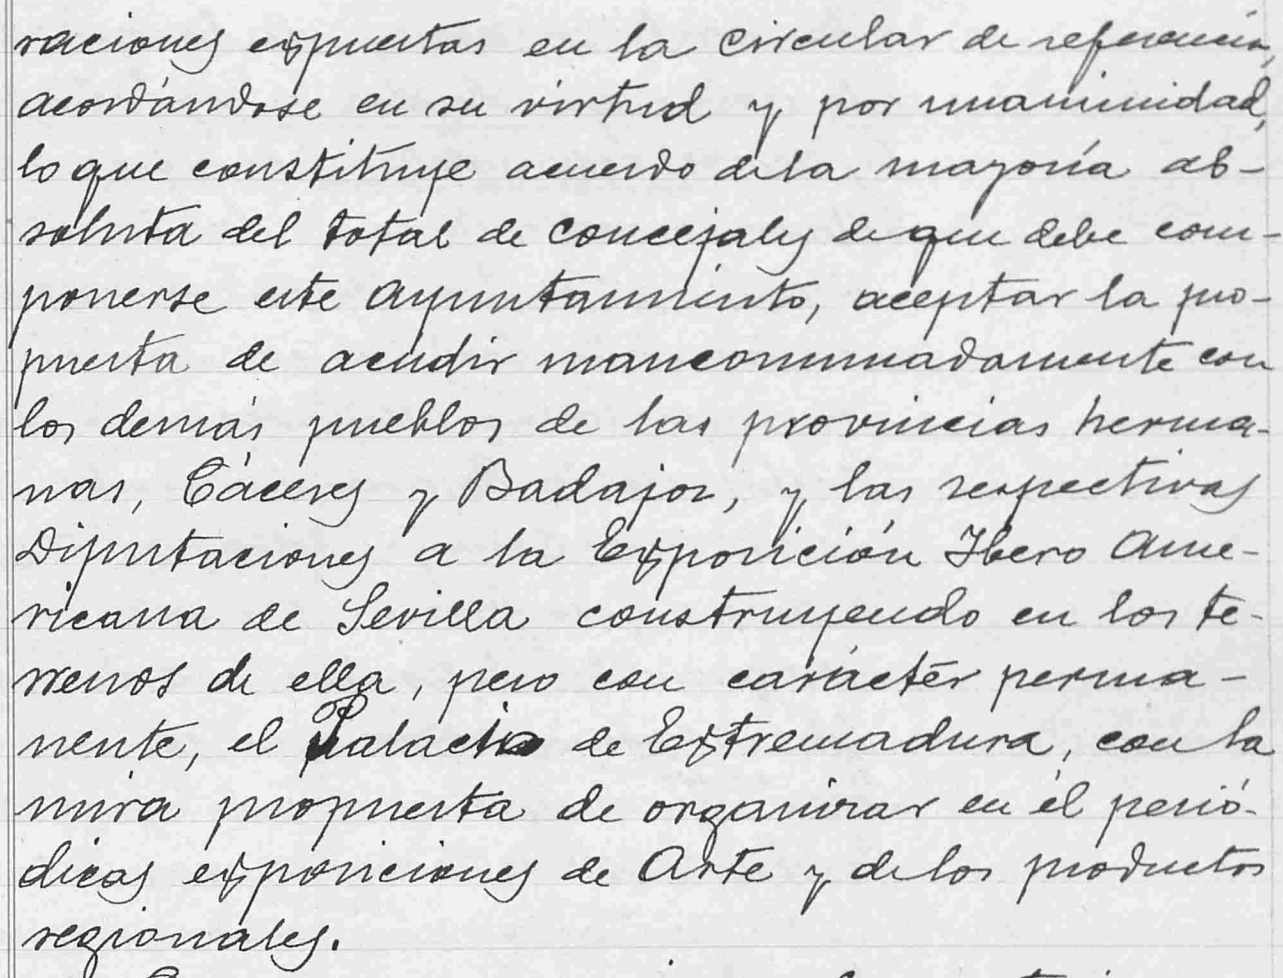 raciones expuestas en la circular de referencia,
acordándose en su virtud y por unanimidad,
lo que constituye acuerdo de la mayoría ab-
soluta del total de concejales de que debe com-
ponerse este Ayuntamiento, aceptar la pro-
puesta de acudir mancomunadamente con
los demás pueblos de las provincias herma-
nas, Cáceres y Badajoz, y las respectivas
Diputaciones a la Exposición Ibero Ame-
ricana de Sevilla construyendo en los te-
rrenos de ella, pero con carácter perma-
nente, el Palacio de Extremadura, con la
mira propuesta de organizar en él perió-
dicas exposiciones de Arte y de los productos
regionales.